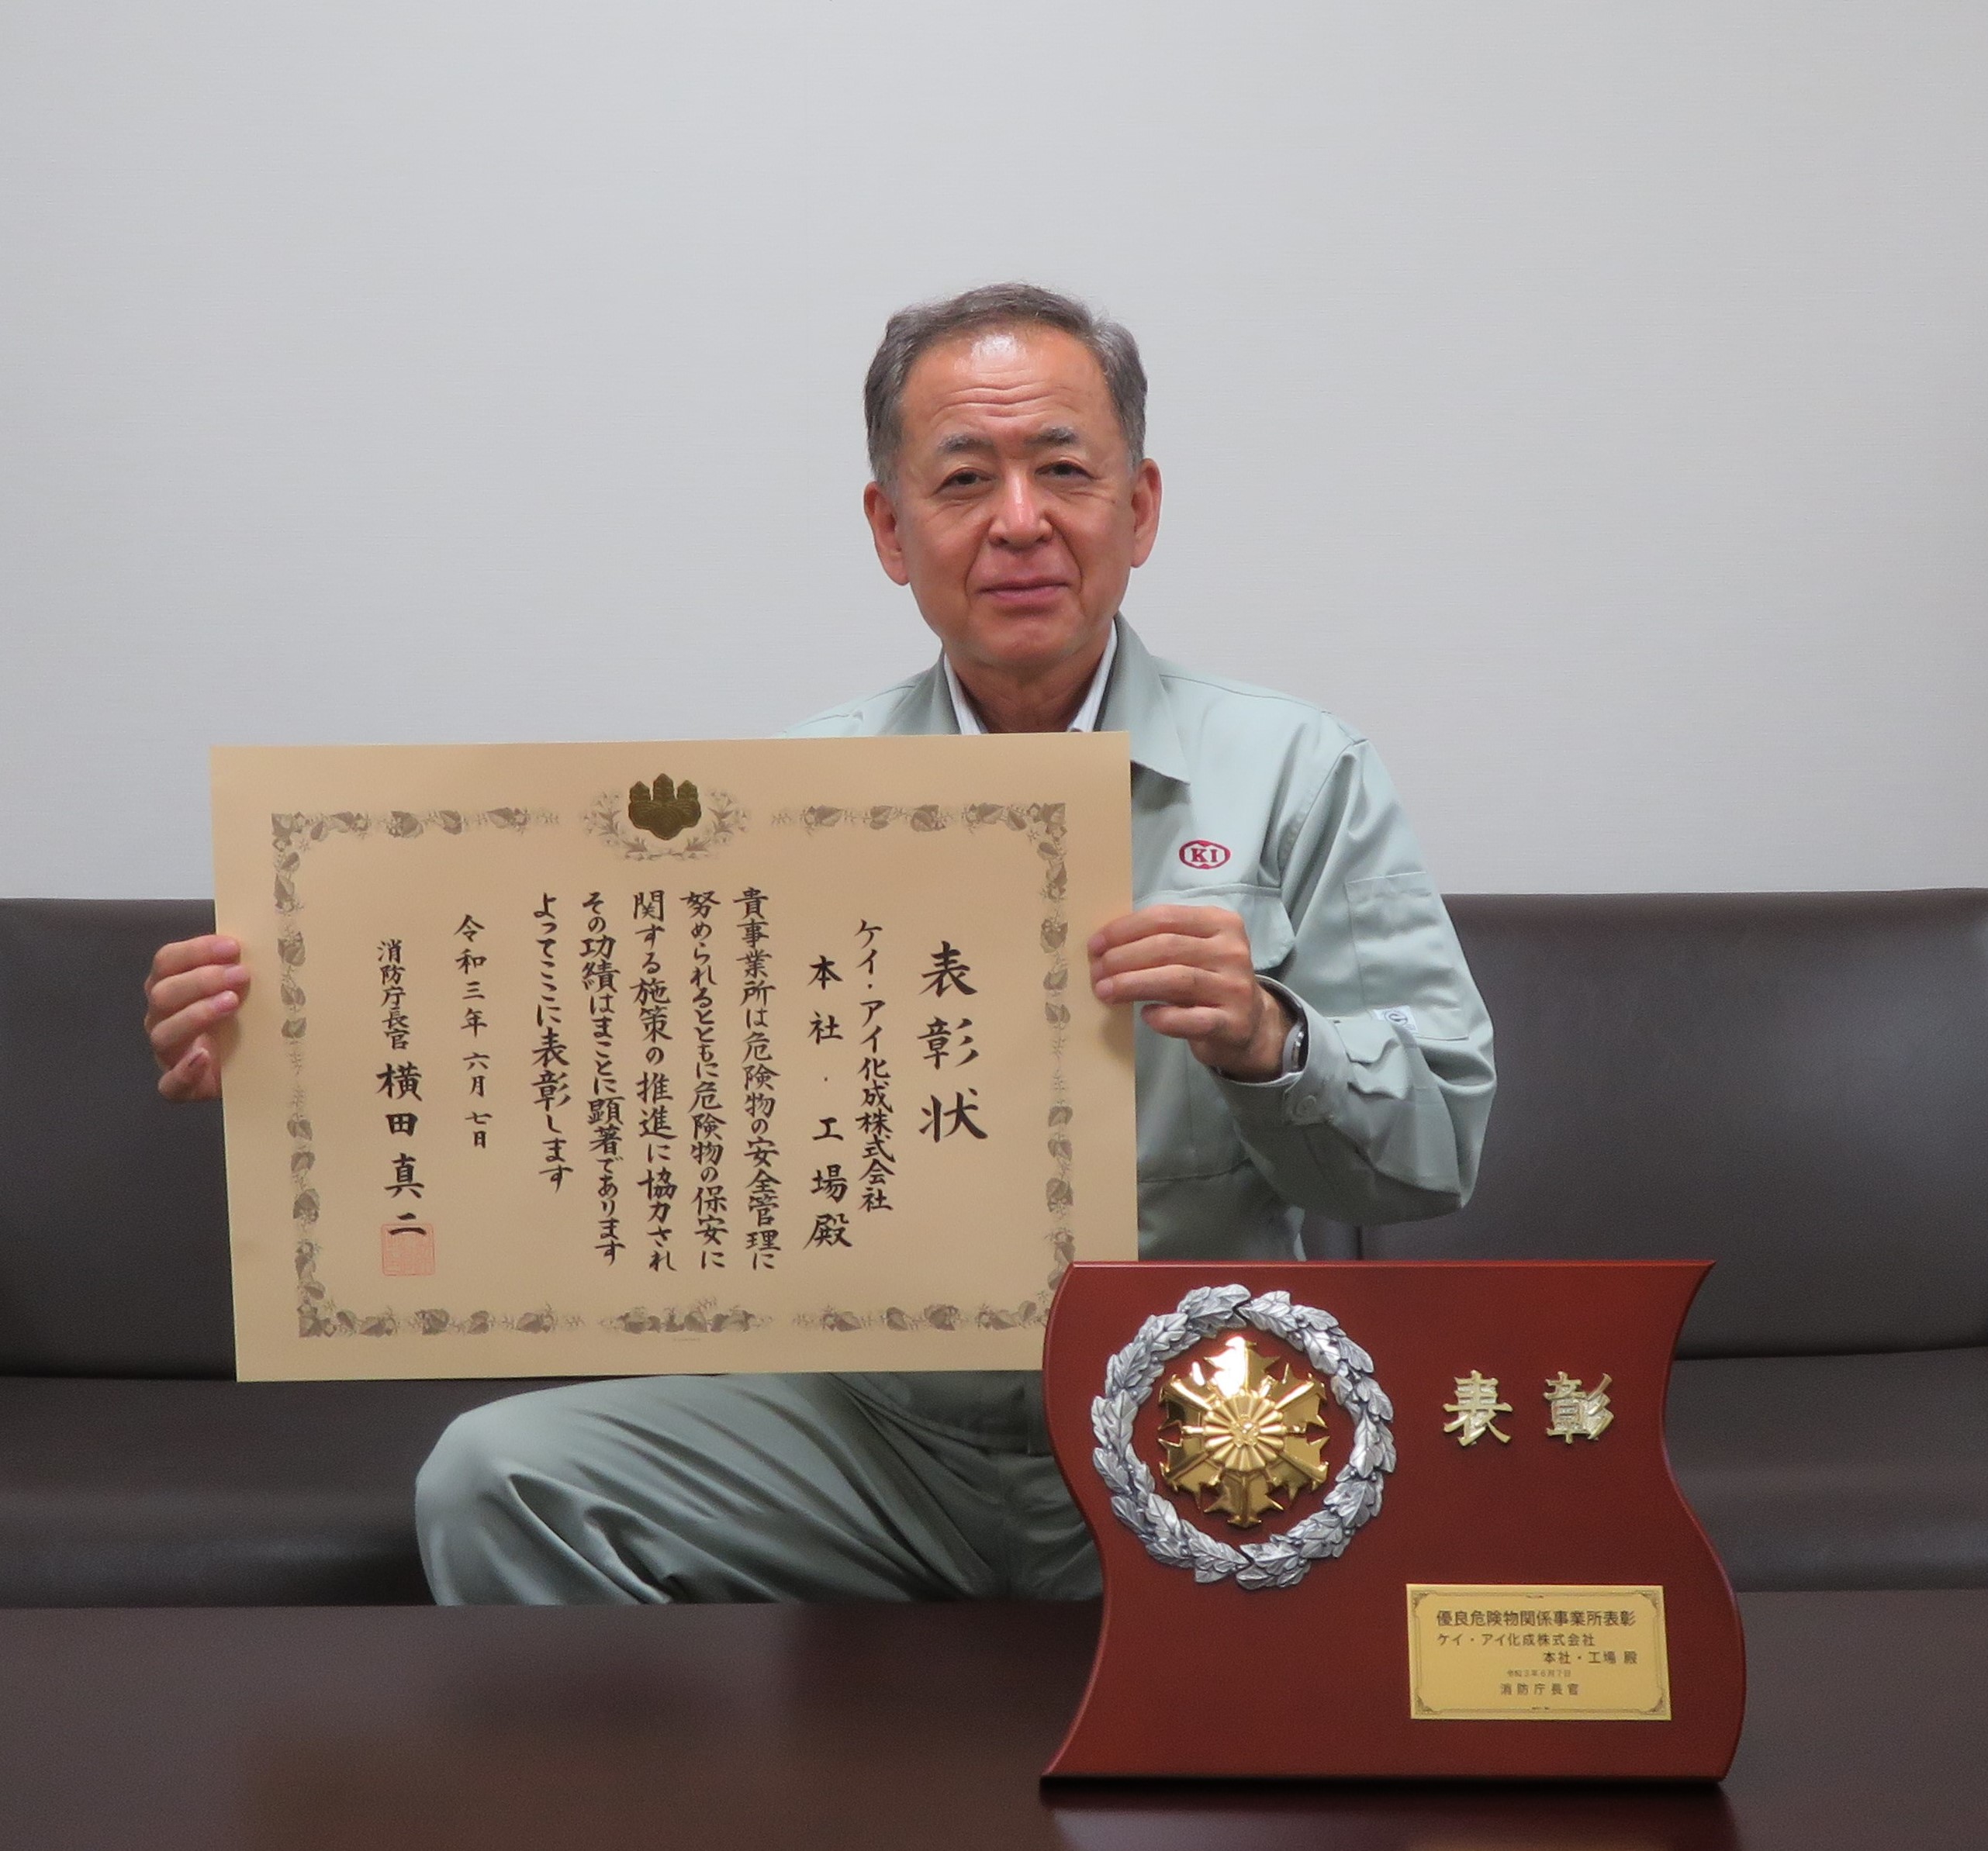 表彰状
ケイ・アイ化成株式会社
本社・工場殿
貴事業所は危険物の安全管理に
努められるとともに危険物の保安に
関する施策の推進に協力され
その功績はまことに顕著であります
よってここに表彰します
令和三年六月七日
消防庁長官 横田真二
KI
表彰
優良危険物関係事業所表彰
ケイ・アイ化成株式会社
本社・工場 殿
令和3年6月7日
消防庁長官